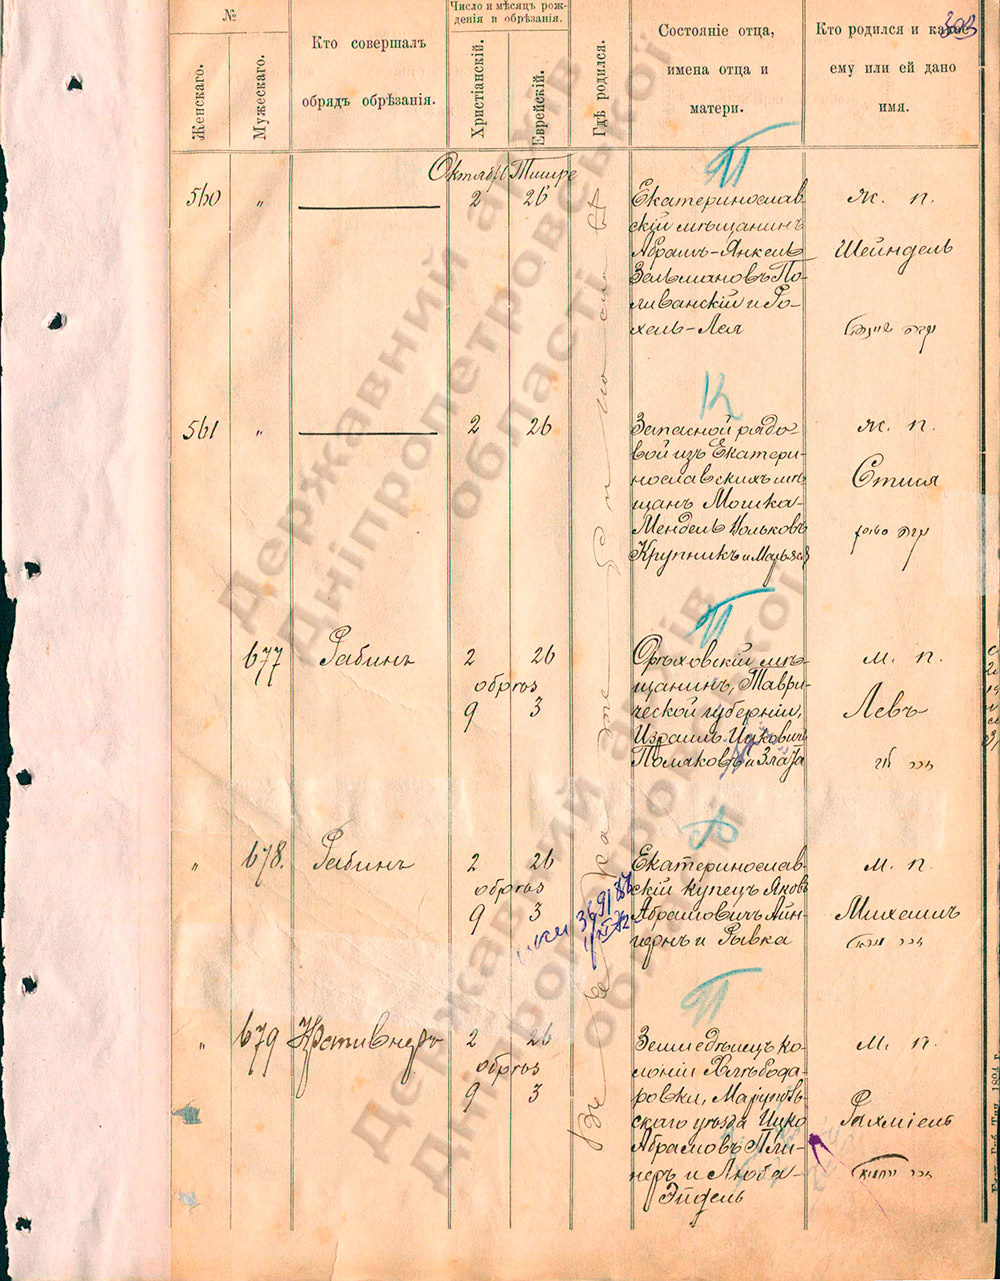 303
№
Женскаго.
Мужескаго.
Кто совершалъ
обрядъ обрѣзанія.
Число и мѣсяцъ рож-
денія и обрѣзанія.
Христіанскій.
Еврейскій.
Гдѣ родился.
Состояніе отца,
имена отца и
матери.
Кто родился и какое
ему или ей дано
имя.
Октябрь Тишре
560 " 2 26
Екатеринослав-
скій мѣщанинъ
Абрамъ-Янкель
Зельмановъ По-
ливанскій и Ро-
хель-Лея
ж. п.
Шейндель
П
561 " 2 26
Запасной рядо-
вой изъ Екатери-
нославскихъ мѣ-
щанъ Мошка-
Мендель Вольковъ
Крупникъ и Марьяся
ж. п.
Стися
К
677 Рабинъ 2 26
обрѣз
9 3
Орѣховскій мѣ-
щанинъ, Таври-
ческой губерніи,
Израиль Ицковичъ
Поляковъ и Злата
м. п.
Левъ
П
" 678. Рабинъ 2 26
обрѣз
9 3
Екатеринослав-
скій купецъ Яковъ
Абрамовичъ Айн-
горнъ и Рывка
м. п.
" 679 2 26
обрѣз
9 3
Земледѣлецъ ко-
лоніи Хлѣбода-
ровки, Маріуполь-
скаго уѣзда Ицко
Абрамовъ Пли-
неръ и Люба-
Эйдель
м. п.
Рахміель
П
Державний архів
Дніпропетровської
області
Державний архів
Дніпропетровської
області